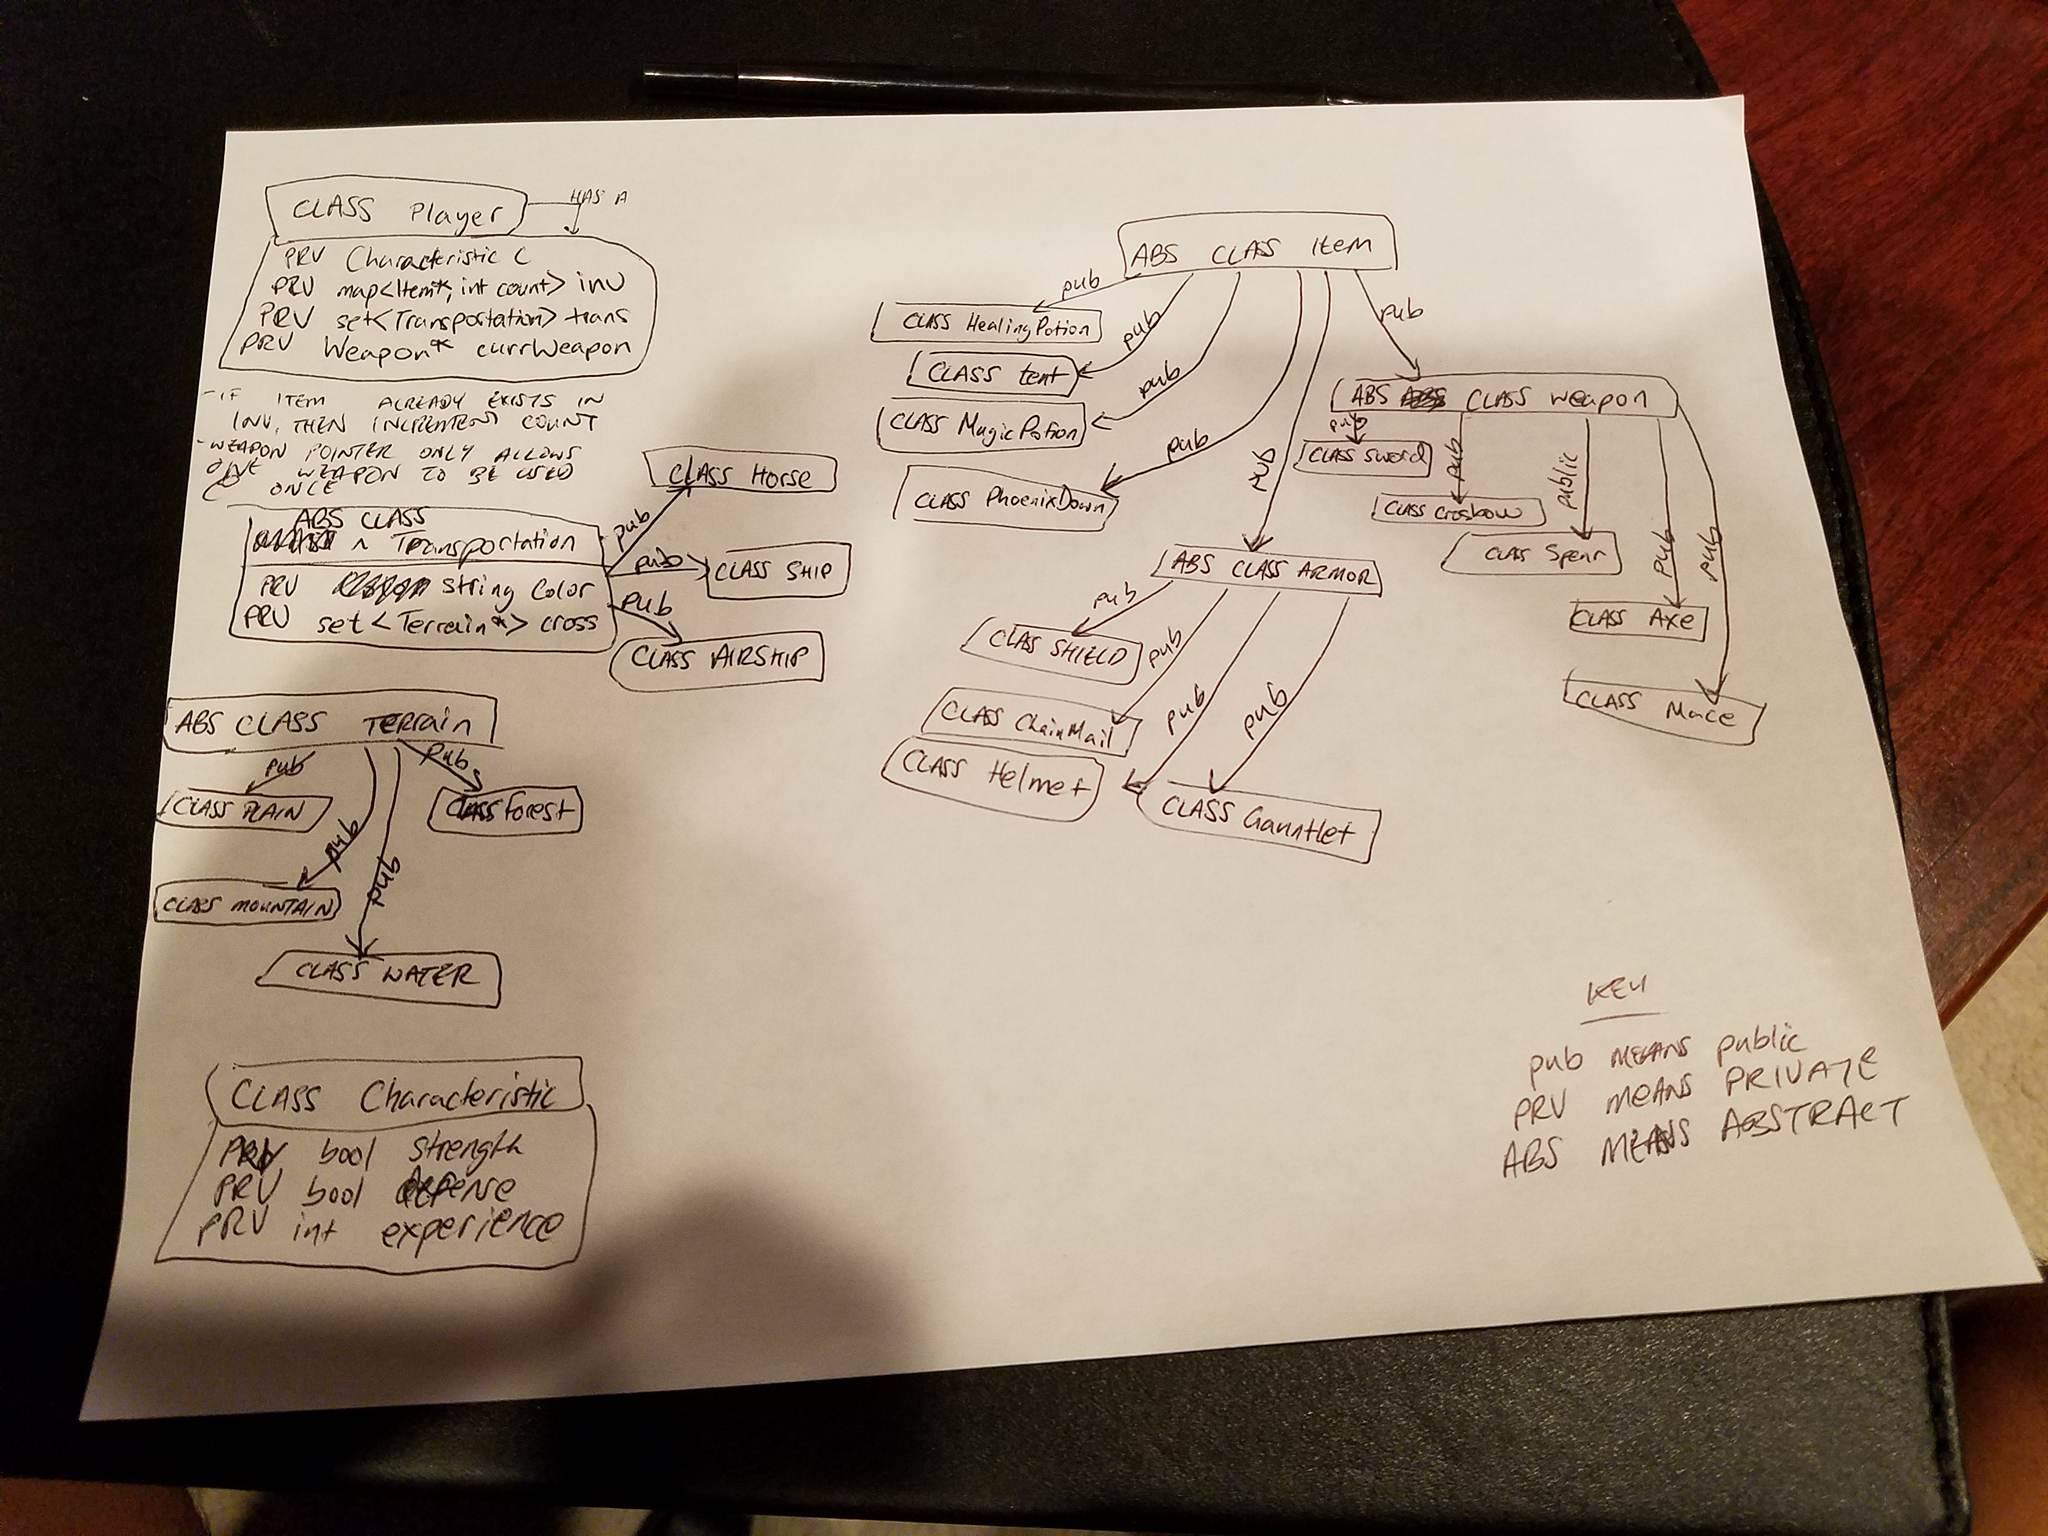 CLASS Player
HAS A
PRV Characteristic C
PRV map<Item*, int count> inv
PRV set<Transportation> trans
PRV Weapon* currWeapon
- IF ITEM ALREADY EXISTS IN
INV, THEN INCREMENT COUNT
- WEAPON POINTER ONLY ALLOWS
ONE WEAPON TO BE USED
@ ONCE
ABS CLASS
^ Transportation
PRV string Color
PRV set<Terrain*> cross
pub
CLASS Horse
pub
CLASS SHIP
pub
CLASS AIRSHIP
ABS CLASS Terrain
pub
CLASS PLAIN
pub
CLASS Forest
pub
CLASS MOUNTAIN
pub
CLASS WATER
CLASS Characteristic
PRV bool strength
PRV bool defense
PRV int experience
ABS CLASS Item
pub
CLASS HealingPotion
pub
CLASS tent
pub
CLASS MagicPotion
pub
CLASS PhoenixDown
pub
ABS CLASS ARMOR
pub
CLASS SHIELD
pub
CLASS ChainMail
pub
CLASS Helmet
pub
CLASS Gauntlet
pub
ABS CLASS weapon
pub
CLASS sword
pub
CLASS crosbow
public
CLASS Spear
pub
CLASS Axe
pub
CLASS Mace
KEY
pub MEANS public
PRV MEANS PRIVATE
ABS MEANS ABSTRACT